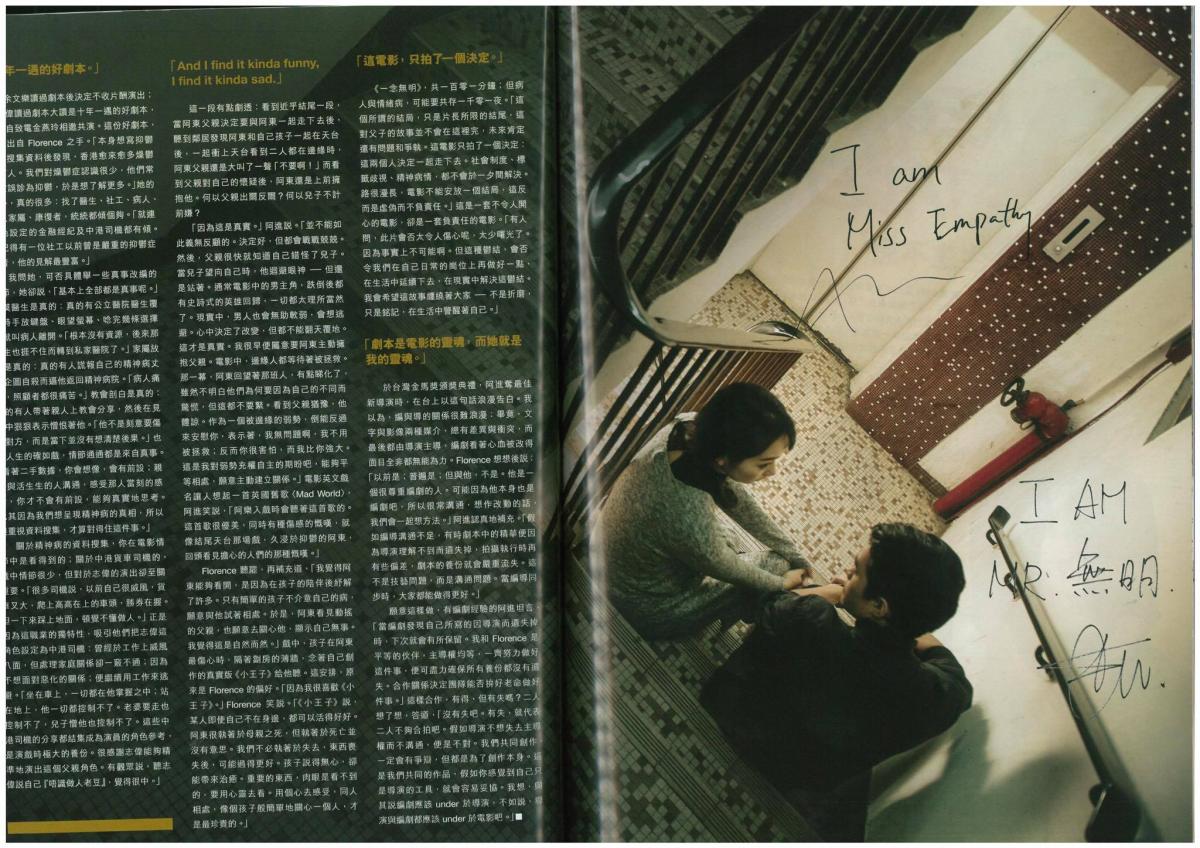 年一遇的好劇本。」
余文樂讀過劇本後決定不收片酬演出;
偉讀過劇本大讚是十年一遇的好劇本,
自致電金燕玲相邀共演。這份好劇本,
出自 Florence 之手。「本身想寫抑鬱
搜集資料後發現,香港愈來愈多燥鬱
人。我們對燥鬱症認識很少,他們常
誤診為抑鬱,於是想了解更多。」她的
,真的很多:找了醫生、社工、病人、
家屬、康復者,統統都傾個夠。「就連
設定的金融經紀及中港司機都有傾。
記得有一位社工以前曾是嚴重的抑鬱症
,他的見解最豐富。」
我問她,可否具體舉一些真事改編的
,她卻說,「基本上全部都是真事呢。」
醫生是真的:真的有公立醫院醫生覆
手放鍵盤、眼望螢幕、唸完幾條選擇
就叫病人離開。「根本沒有資源,後來那
生也捱不住而轉到私家醫院了。」家屬放
是真的:真的有人謊報自己的精神病丈
企圖自殺而逼他返回精神病院。「病人痛
,照顧者都很痛苦。」教會剖白是真的:
的有人帶著親人上教會分享,然後在見
中狠狠表示憎恨著他。「他不是刻意要傷
對方,而是當下並沒有想清楚後果。」也
人生的確如戲,情節通通都是來自真事。
著二手數據,你會想像,會有前設;親
與活生生的人溝通,感受那人當刻的感
,你才不會有前設,能夠真實地思考。
其因為我們想呈現精神病的真相,所以
重視資料搜集,才算對得住這件事。」
關於精神病的資料搜集,你在電影情
中是看得到的;關於中港貨車司機的,
中情節很少,但對於志偉的演出卻至關
要。「很多司機說,以前自己很威風,貨
又大,爬上高高在上的車頭,勝券在握。
一下來踩上地面,頓覺不懂做人。」正是
為這職業的獨特性,吸引他們把志偉這
角色設定為中港司機:曾經於工作上威風
八面,但處理家庭關係卻一竅不通;因為
不想面對惡化的關係;便繼續用工作來逃
避。「坐在車上,一切都在他掌握之中;站
在地上,他一切都控制不了。老婆要走也
控制不了,兒子憎他也控制不了。這些中
港司機的分享都結集成為演員的角色參考,
是演戲時極大的養份。很感謝志偉能夠精
準地演出這個父親角色。有觀眾說,聽志
偉說自己『唔識做人老豆』,覺得很中。」
「And I find it kinda funny,
I find it kinda sad.」
這一段有點劇透:看到近乎結尾一段,
當阿東父親決定要與阿東一起走下去後,
聽到鄰居發現阿東和自己孩子一起在天台
後,一起衝上天台看到二人都在邊緣時,
阿東父親還是大叫了一聲「不要啊!」而看
到父親對自己的懷疑後,阿東還是上前擁
抱他。何以父親出爾反爾?何以兒子不計
前嫌?
「因為這是真實。」阿進說。「並不能如
此義無反顧的。決定好,但都會戰戰兢兢。
然後,父親很快就知道自己錯怪了兒子。
當兒子望向自己時,他迴避眼神 — 但還
是站著。通常電影中的男主角,跌倒後都
有史詩式的英雄回歸,一切都太理所當然
了。現實中,男人也會無助軟弱,會想逃
避。心中決定了改變,但都不能翻天覆地。
這才是真實。我很早便屬意要阿東主動擁
抱父親。電影中,邊緣人都等待著被拯救。
那一幕,阿東回望著那班人,有點睇化了,
雖然不明白他們為何要因為自己的不同而
驚慌,但這都不要緊。看到父親猶豫,他
體諒。作為一個被邊緣的弱勢,倒能反過
來安慰你,表示著,我無問題啊,我不用
被拯救;反而你很害怕,而我比你強大。
這是我對弱勢充權自主的期盼吧,能夠平
等相處,願意主動建立關係。」電影英文戲
名讓人想起一首英國舊歌《Mad World》,
阿進笑說,「阿樂入戲時會聽著這首歌的。
這首歌很優美,同時有種傷感的慨嘆,就
像結尾天台那場戲,久浸於抑鬱的阿東,
回頭看見擔心的人們的那種慨嘆。」
Florence 聽罷,再補充道,「我覺得阿
東能夠看開,是因為在孩子的陪伴後紓解
了許多。只有簡單的孩子不介意自己的病,
願意與他試著相處。於是,阿東看見動搖
的父親,也願意去關心他,顯示自己無事。
我覺得這是自然而然。」戲中,孩子在阿東
最傷心時,隔著劏房的薄牆,念著自己創
作的真實版《小王子》給他聽。這安排,原
來是 Florence 的偏好。「因為我很喜歡《小
王子》。」Florence 笑說。「《小王子》說,
某人即使自己不在身邊,都可以活得好好。
阿東很執著於母親之死,但執著於死亡並
沒有意思。我們不必執著於失去,東西喪
失後,可能過得更好。孩子說得無心,卻
能帶來治癒。重要的東西,肉眼是看不到
的,要用心靈去看。用個心去感受,同人
相處,像個孩子般簡單地關心一個人,才
是最珍貴的。」
「這電影,只拍了一個決定。」
《一念無明》,共一百零一分鐘;但病
人與情緒病,可能要共存一千零一夜。「這
個所謂的結局,只是片長所限的結尾,這
對父子的故事並不會在這裡完,未來肯定
還有問題和爭執。這電影只拍了一個決定:
這兩個人決定一起走下去。社會制度、標
籤歧視、精神病情,都不會於一夕間解決。
路很漫長,電影不能安放一個結局,這反
而是虛偽而不負責任。」這是一套不令人開
心的電影,卻是一套負責任的電影。「有人
問,此片會否太令人傷心呢,太少曙光了。
因為事實上不可能啊。但這種鬱結,會否
令我們在自己日常的崗位上再做好一點,
在生活中延續下去,在現實中解決這鬱結。
我會希望這故事纏繞著大家 — 不是折磨,
只是銘記,在生活中警醒著自己。」
「劇本是電影的靈魂,而她就是
我的靈魂。」
於台灣金馬獎頒獎典禮,阿進奪最佳
新導演時,在台上以這句話浪漫告白。我
以為,編與導的關係很難浪漫;畢竟,文
字與影像兩種媒介,總有差異與衝突,而
最後都由導演主導,編劇看著心血被改得
面目全非都無能為力。Florence 想想後說:
「以前是;普遍是;但與他,不是。他是一
個很尊重編劇的人。可能因為他本身也是
編劇吧,所以很常溝通,想作改動的話,
我們會一起想方法。」阿進認真地補充。「假
如編導溝通不足,有時劇本中的精華便因
為導演理解不到而遺失掉,拍攝執行時再
有些偏差,劇本的養份就會嚴重流失。這
不是技藝問題,而是溝通問題。當編導同
步時,大家都能做得更好。」
願意這樣做,有編劇經驗的阿進坦言,
「當編劇發現自己所寫的因導演而遺失掉
時,下次就會有所保留。我和 Florence 是
平等的伙伴,主導權均等,一齊努力做好
這件事,便可盡力確保所有養份都沒有遺
失。合作關係決定團隊能否拚好老命做好
件事。」這樣合作,有得、但有失嗎?二人
想了想,答道,「沒有失吧。有失,就代表
二人不夠合拍吧。假如導演不想失去主導
權而不溝通,便是不對。我們共同創作
一定會有爭辯,但都是為了創作本身。這
是我們共同的作品,假如你感覺到自己只
是導演的工具,就會容易妥協。我想,與
其說編劇應該 under 於導演,不如說,導
演與編劇都應該 under 於電影吧。」■
I am
Miss Empathy
I AM
MR. 無明.